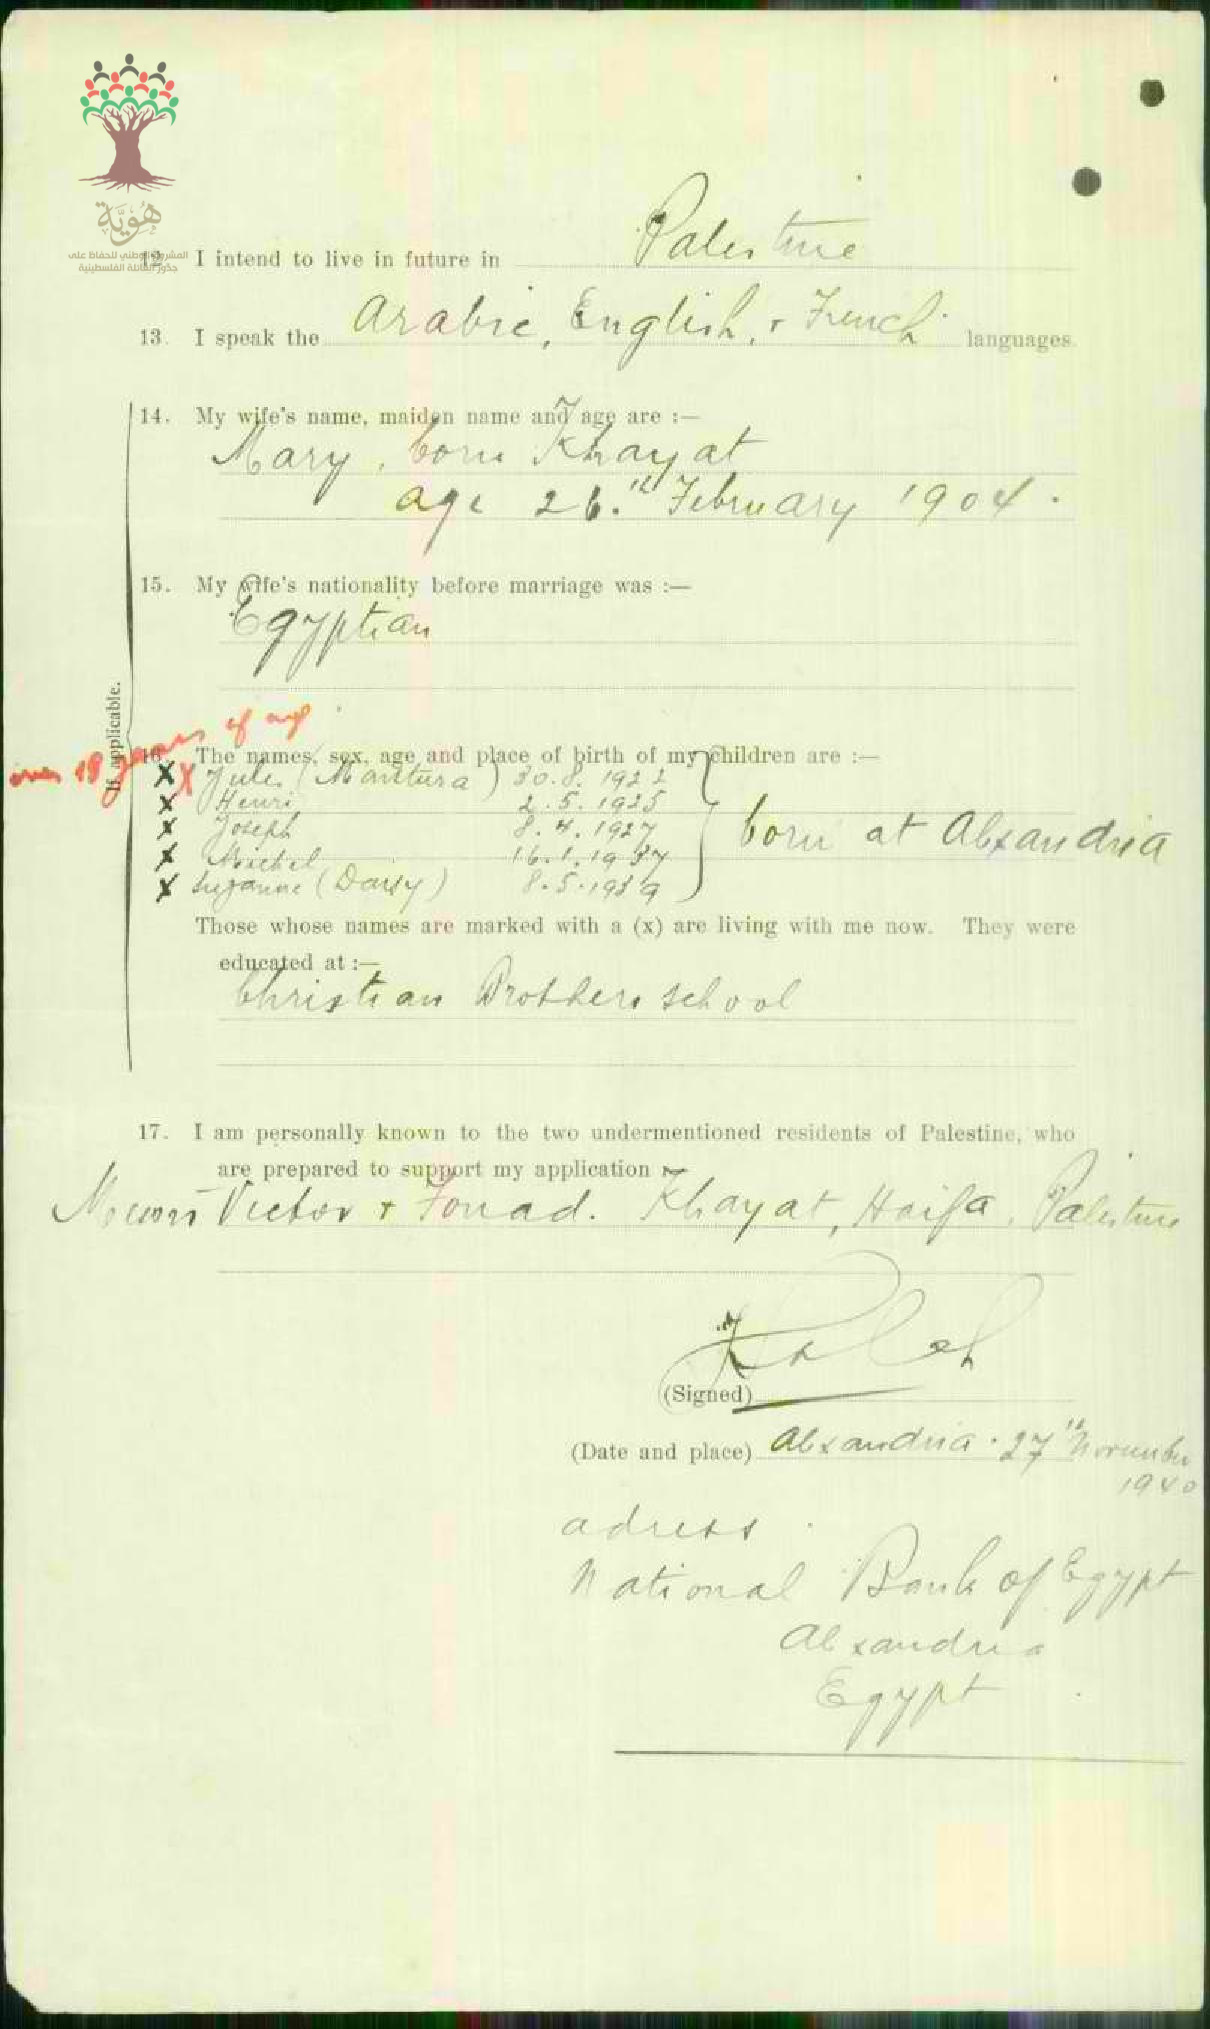 هُوِيَّة
المشروع الوطني للحفاظ على
جذور العائلة الفلسطينية
12. I intend to live in future in Palestine
13. I speak the Arabic, English, + French languages.
If applicable.
14. My wife's name, maiden name and age are :—
Mary, born Khayat
age 26.th February 1904.
15. My wife's nationality before marriage was :—
Egyptian
over 18 years of age
16. The names, sex, age and place of birth of my children are :—
X X Jules (Mansura) 30.8.1922
X Henri 2.5.1925
X Joseph 8.4.1927
X Michel 16.1.1937
X Suzanne (Daisy) 8.5.1939
born at Alexandria
Those whose names are marked with a (x) are living with me now. They were
educated at :—
Christian Brothers school
17. I am personally known to the two undermentioned residents of Palestine, who
are prepared to support my application :—
Victor + Fouad. Khayat, Haifa, Palestine
(Signed)
(Date and place) Alexandria. 27th November
1940
adress
National Bank of Egypt
Alexandria
Egypt